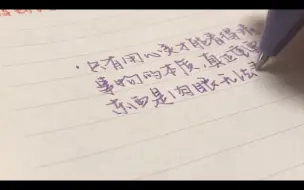 ·只有用心灵才能看得清
事物的本质,真正重要
东西是肉眼无法